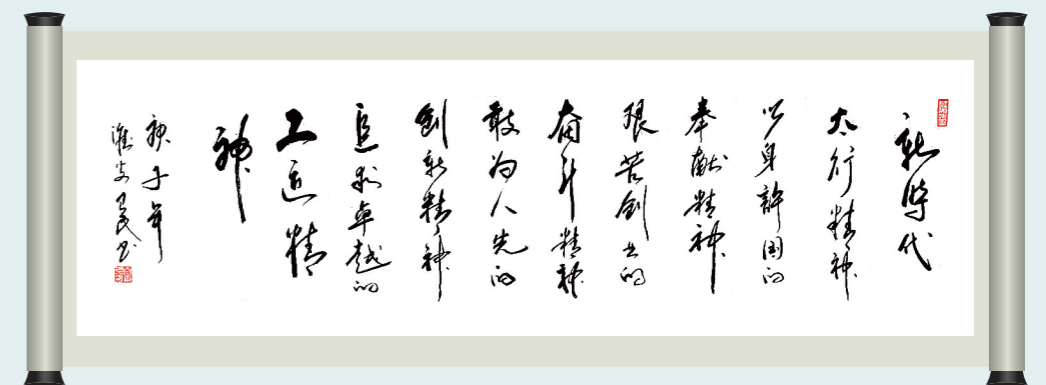 新时代
太行精神
以身許国的
奉献精神
艰苦创业的
奋斗精神
敢为人先的
创新精神
追求卓越的
工匠精
神
庚子年